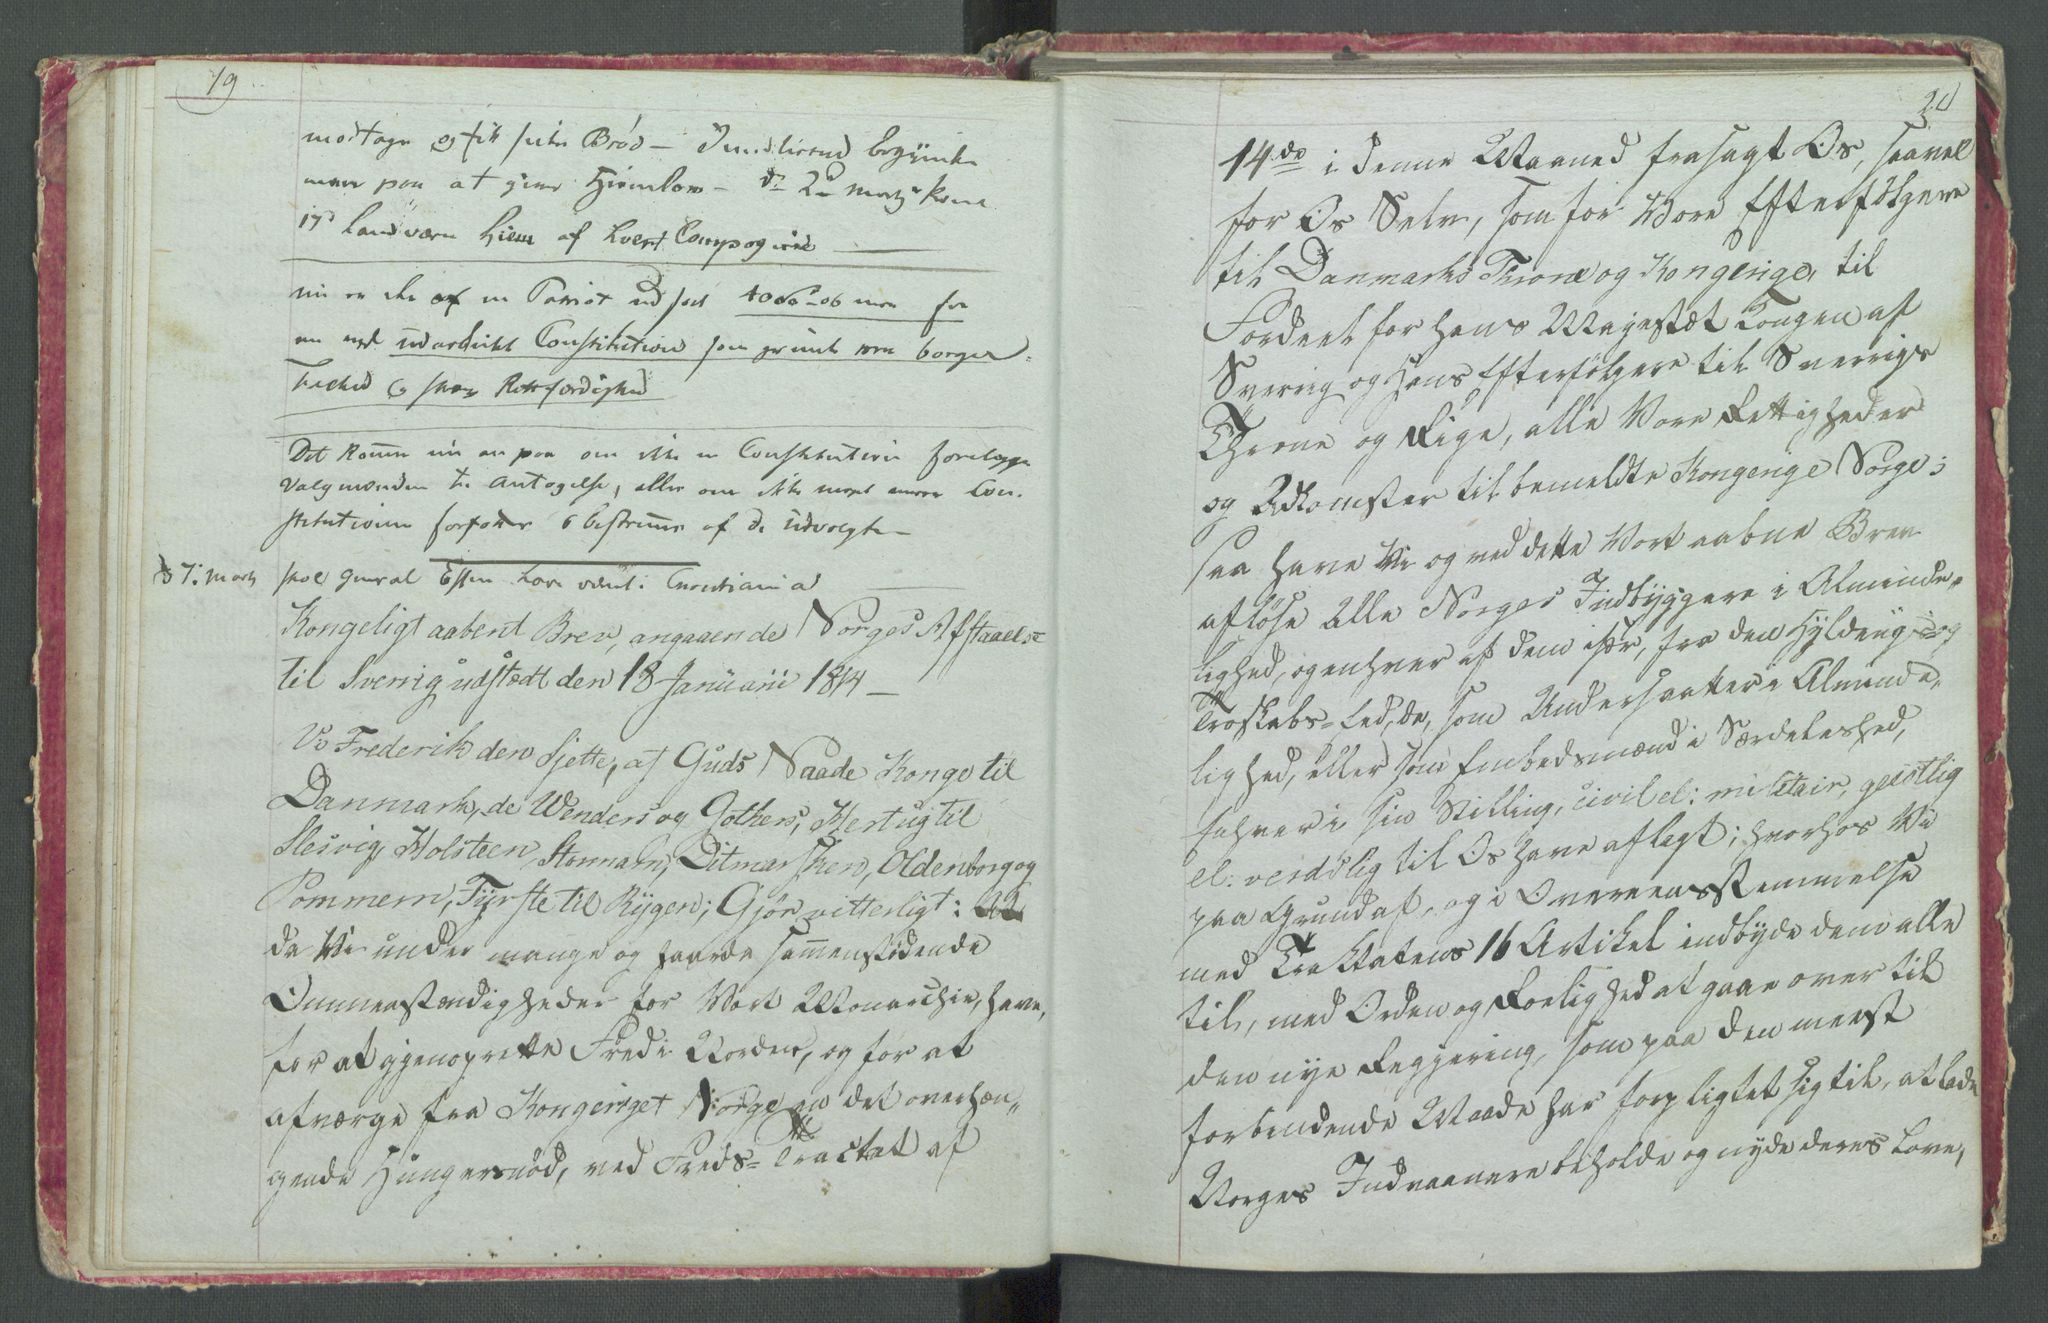 19
modtage og fik sikre Brød — Imidlertid begynte
man paa at give Hiemlov — d: 2n Martz kom
17 Landværn hiem af hvert Compagnie
nu er der af en Patriot udsat 1000 for
en ud Constitution som borger
og Rettfærdighed
Det kommer nu an paa om ikke en Constitution forelægges
Valgmænden til antagelse, eller om ikke Con-
stitutionen forfattes & bestemmes af de Udvalgte —
d 7: Marts skal General Essen have været i Christiania
Kongeligt aabent Brev, angaaende Norges Afstaaelse
til Sverrig udstædt den 18 Januarii 1814 —
Vi Frederik den Sjette, af Guds Naade Konge til
Danmark, de Wenders og Gothers, Hertug til
Slesvig, Holsteen, Stormarn, Ditmarsken, Oldenborg og
Pommern, Fyrste til Rygen; Gjør vitterligt:
da Vi under mange og haarde sammenstødende
Omstændigheder for Vort Monarchie, have,
for at gjenoprette Fred i Norden, og for at
afværge fra Kongeriget Norge en det overhæn„
gende Hungersnød, ved Freds-Tractat af
20
14de i denne Maaned frasagt Os, saavel
for Os Selv, som for Vore Efterfølgere
til Danmarks Throne og Kongerige, til
Fordeel for hans Majestæt Kongen af
Sverrig og Hans Efterfølgere til Sverrigs
Throne og Rige, alle Vore Rettigheder
og Adkomster til bemeldte Kongerige Norge;
saa have Vi og ved dette Vort aabne Brev
afløse Alle Norges Indbyggere i Alminde„
lighed, og enhver af dem især, fra den Hyldings- og
Troskabs-Eed, de, som Undersaatter i Alminde„
lighed, eller som Embedsmænd i Særdeleshed,
enhver i sin Stilling, civil el: militair, geistlig
el: verdslig til Os have aflagt; hvorhos Vi
paa Grund af, og i Overensstemmelse
med Traktatens 16 Artikel indbyde dem alle
til, med Orden og Roelighed at gaae over til
den nye Regjering, som paa den meest
forbindende Maade har forpligtet sig til, at lade
Norges Indvaanere beholde og nyde deres Love,